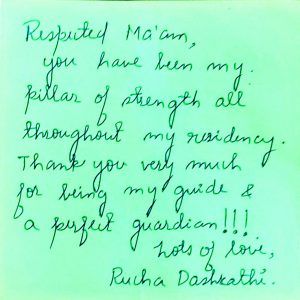 Respected Ma'am,
you have been my
pillar of strength all
throughout my residency.
Thank you very much
for being my guide &
a perfect guardian!!!
Lots of love,
Rucha Dashkathi.